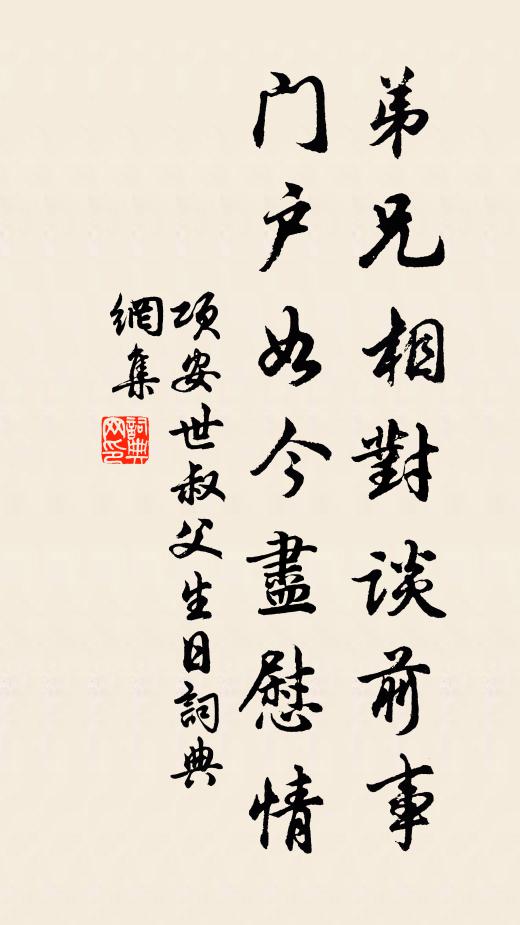 弟兄相對談前事
門户如今盡慰情
項安世叔父生日詞典
網集
詞典
网印